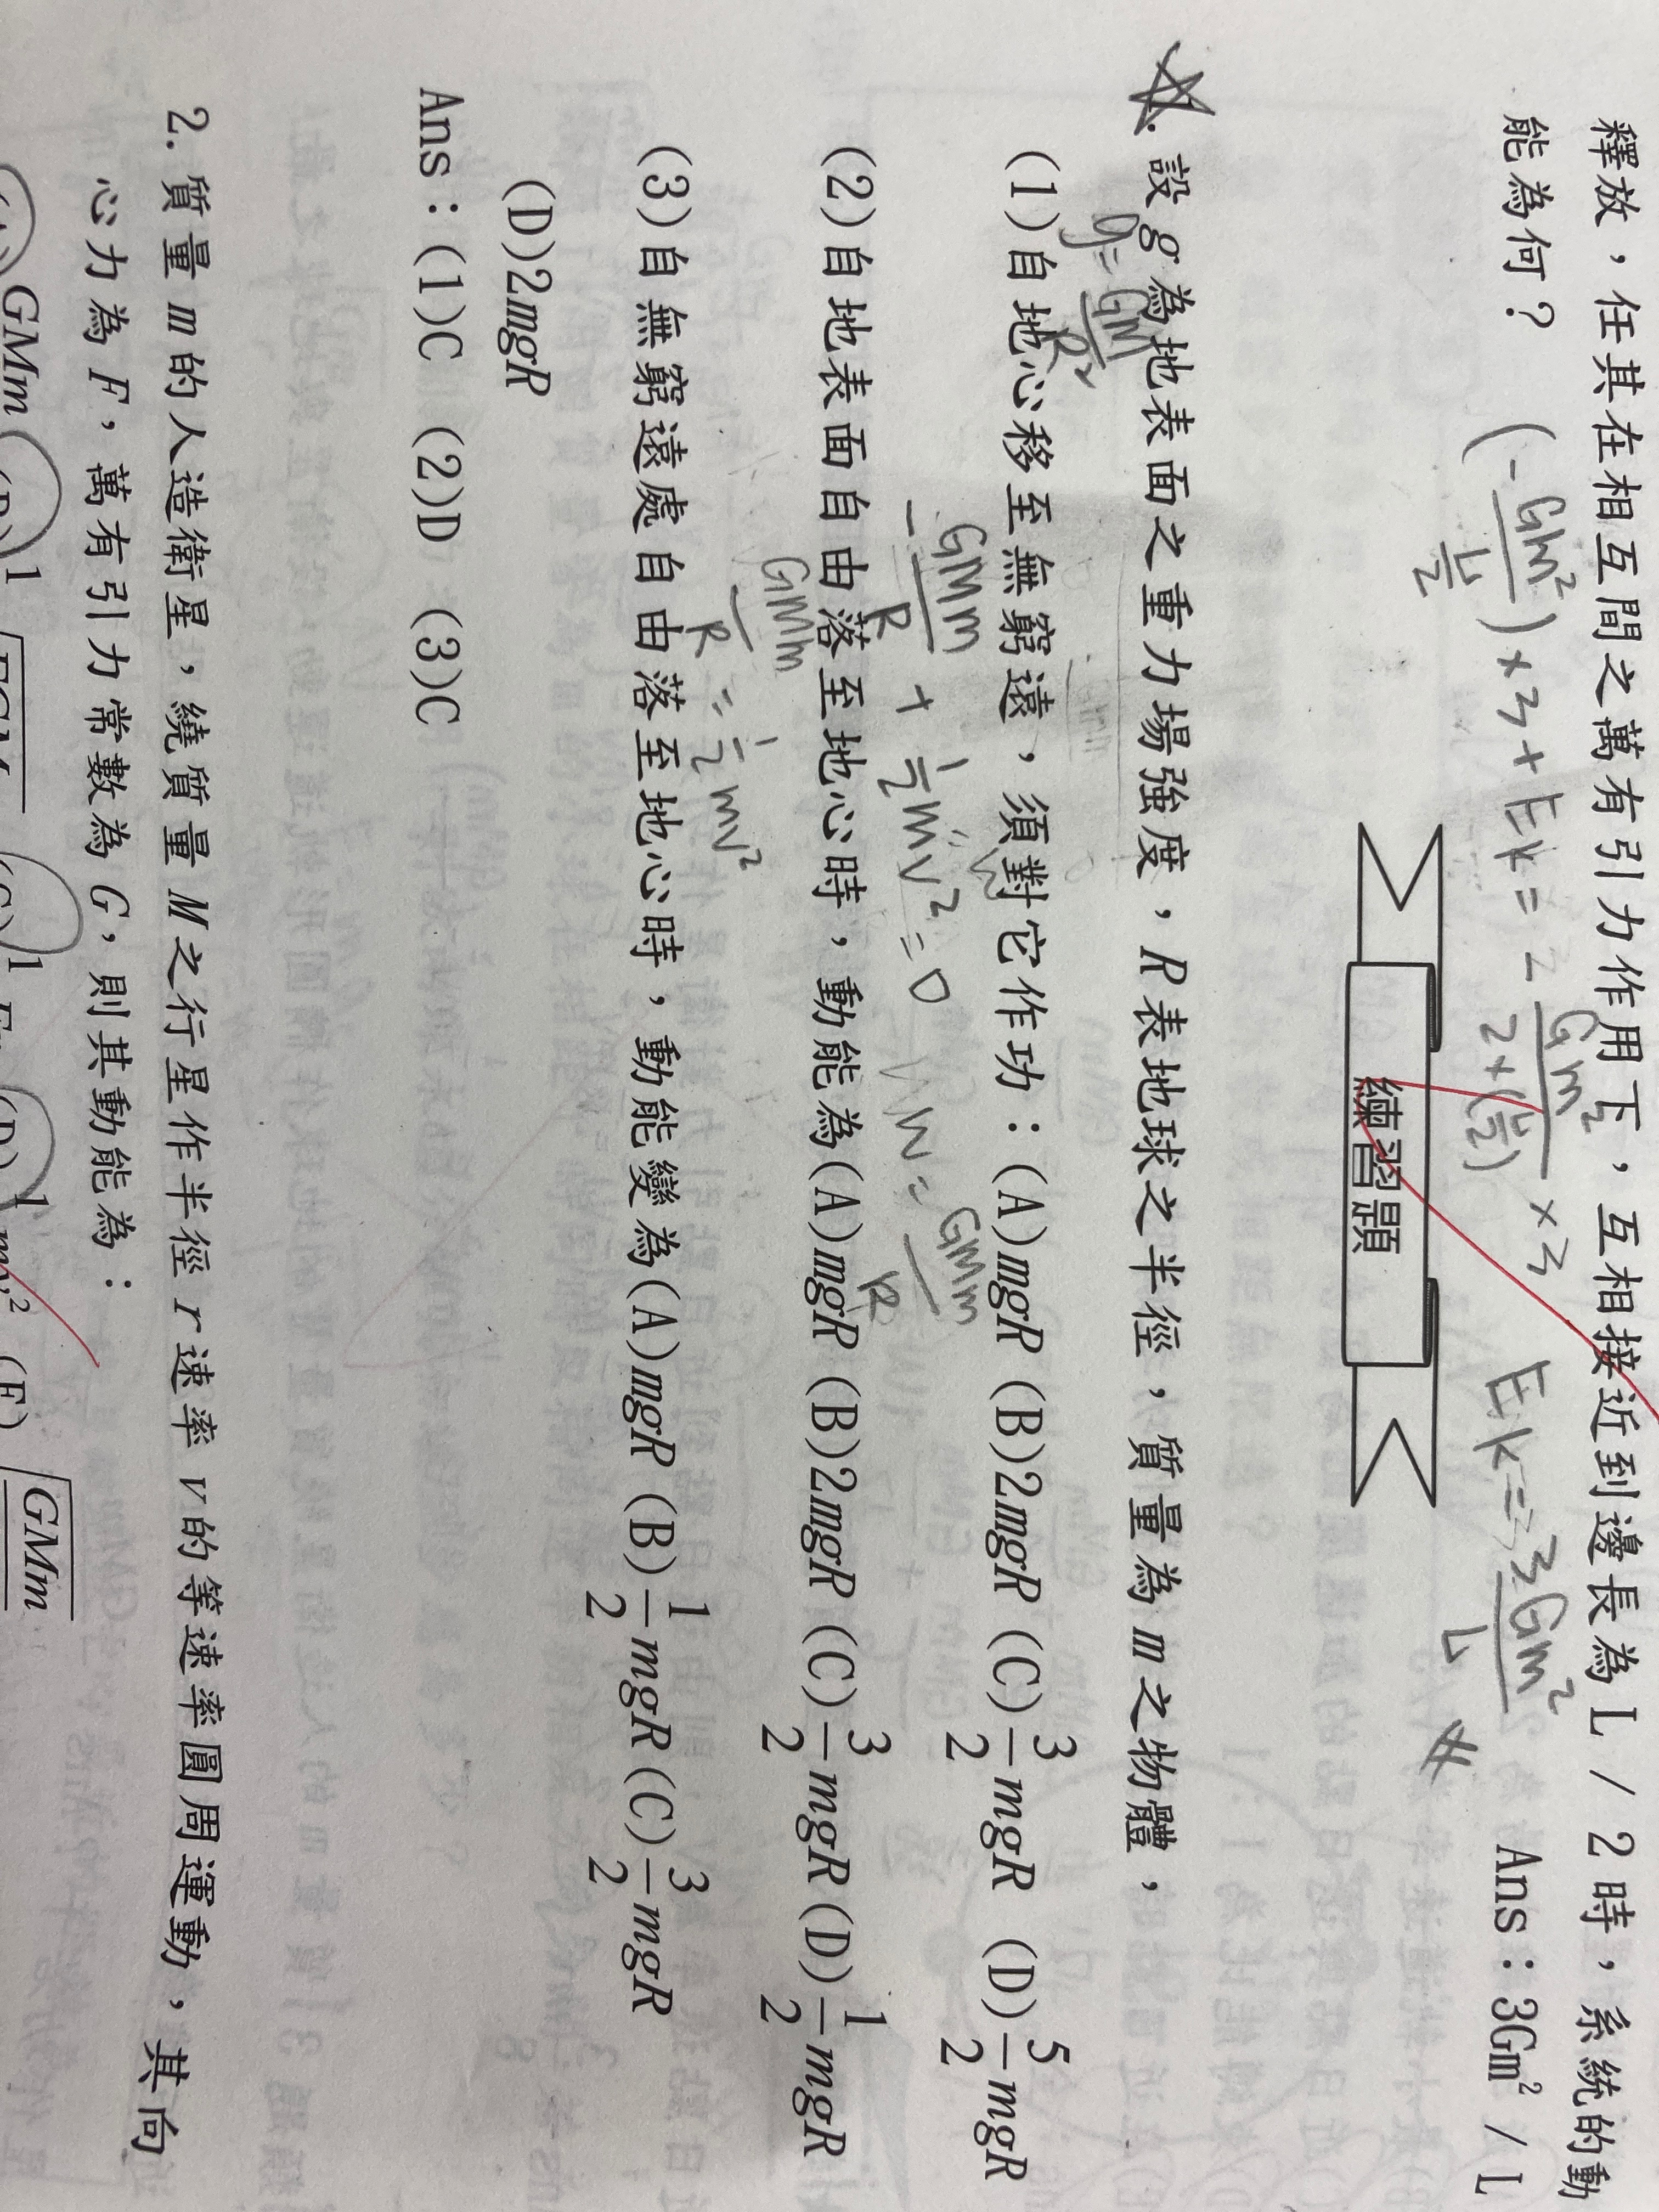 釋放，任其在相互間之萬有引力作用下，互相接近到邊長為L/2時，系統的動
能為何？ Ans：3Gm²/L
(-Gm²/(L/2))×3+Ek=-Gm²/(2×(L/2))×3 Ek=3Gm²/L #
練習題
1. 設g為地表面之重力場強度，R表地球之半徑，質量為m之物體，
g=GM/R²
(1)自地心移至無窮遠，須對它作功：(A)mgR (B)2mgR (C)3/2mgR (D)5/2mgR
-GMm/R+1/2mv²=0 W=GMm/R
(2)自地表面自由落至地心時，動能為(A)mgR (B)2mgR (C)3/2mgR (D)1/2mgR
GMm/R=1/2mv²
(3)自無窮遠處自由落至地心時，動能變為(A)mgR (B)1/2mgR (C)3/2mgR
(D)2mgR
Ans：(1)C (2)D (3)C
2. 質量m的人造衛星，繞質量M之行星作半徑r速率v的等速率圓周運動，其向
心力為F，萬有引力常數為G，則其動能為：
GMm (B)1 (C)1 (D)1 mv² (E) GMm